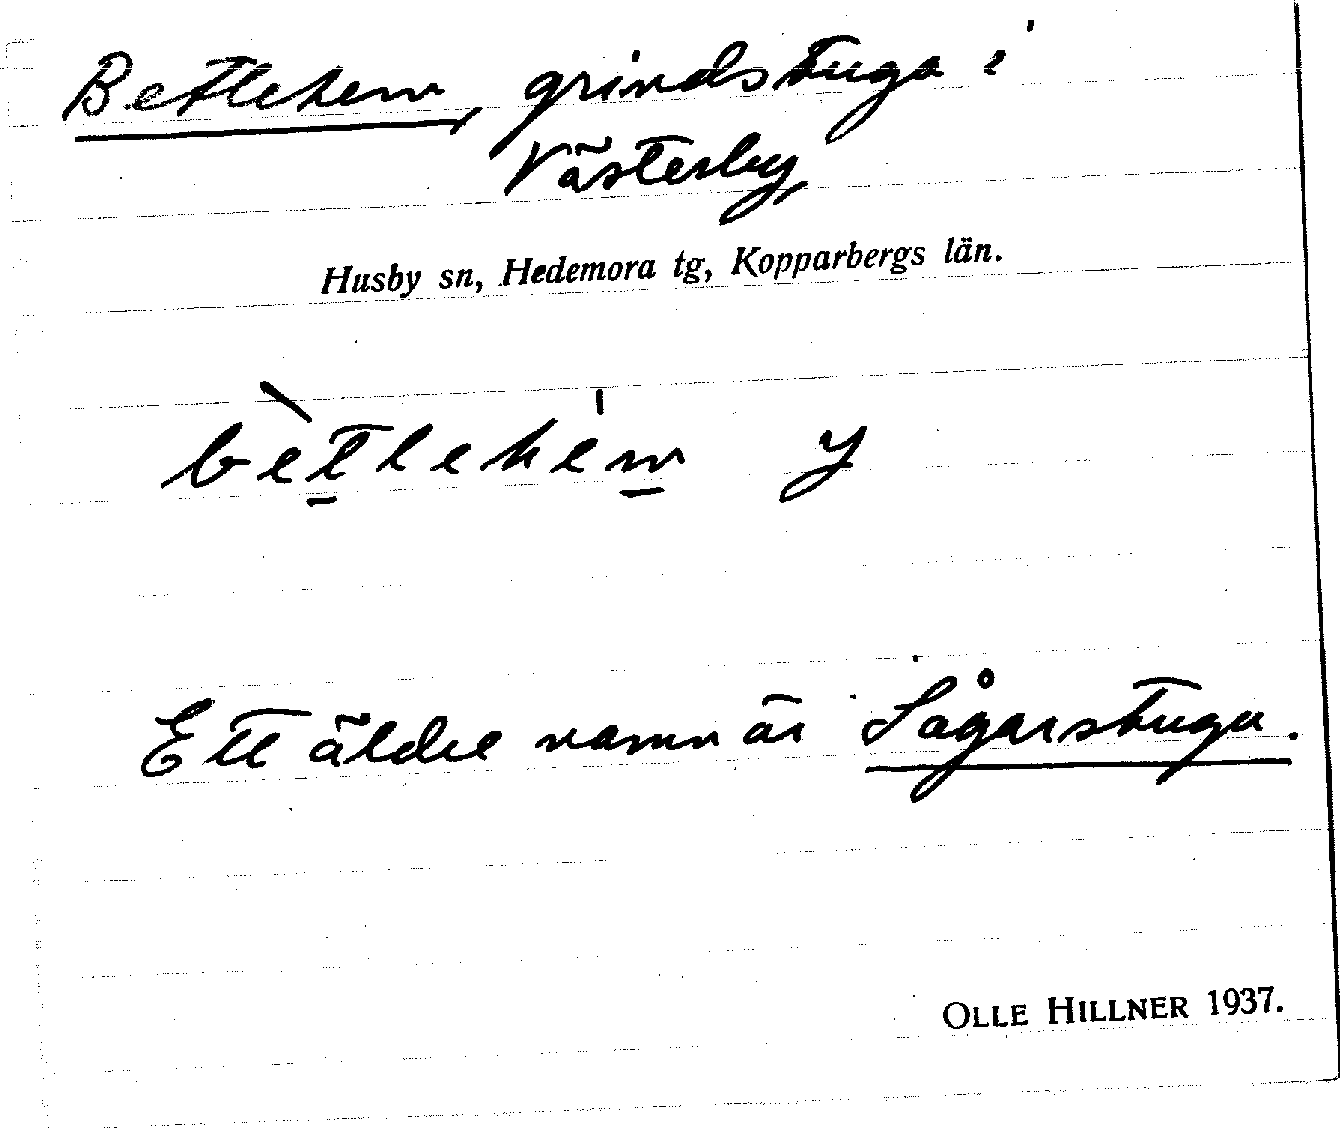 Betlehem, grindstuga i
Västerby,
Husby sn, Hedemora tg, Kopparbergs län.
bètlehem y
Ett äldre namn är Sågarstugu.
OLLE HILLNER 1937.